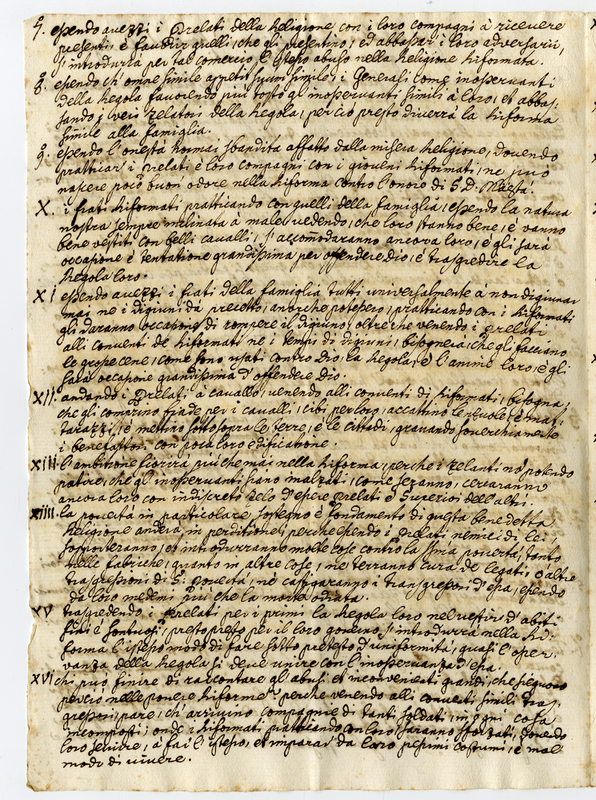 7. essendo avezzi i Prelati della Religione con i loro compagni à ricevere
presenti, e favorir quelli, che gli presentino, ed abbassar i loro adversarii,
s'introdurrà per tal comercio l'istesso abuso nella Religione Riformata.
8. essendo ch'omne simile appetit suum simile, i Generali come inosservanti
della Regola favorendo più tosto gl'inosservanti simili à loro, et abbas
sando i veri zelatori della Regola, perciò presto diverrà la Riforma
simile alla famiglia.
9. essendo l'onestà hormai sbandita affatto dalla misera Religione, dovendo
pratticar i Prelati e loro compagni con i giovini Riformati, ne può
nascere poco buon odore nella Riforma contro l'onore di S. D. Maestà.
X. i frati Riformati pratticando con quelli della famiglia, essendo la natura
nostra sempre inclinata à male, vedendo, che loro stanno bene, e vanno
bene vestiti con belli cavalli, s'accommodaranno ancora loro, e gli sarà
occasione e tentatione grandissima per offendere dio, e trasgredire la
Regola loro.
XI essendo avezzi i frati della famiglia tutti universalmente à non digiunar
mai ne i Digiuni da precetto, ancorche potessero, pratticando con i Riformati
gli daranno occasione di rompere il digiuno, oltre che venendo i Prelati
alli conventi de Riformati ne i tempi di digiuni, bisognerà, che gli facciano
le grosse cene, come sono usati contro Dio la Regola, e l'anime loro, e gli
sarà occasione grandissima d'offendere Dio.
XII. andando i Prelati à cavallo, venendo alli conventi di Riformati, bisogna,
che gli comprino biade per i cavalli, cibi per loro, accattino lenzuole e mat,
tarazzi, e mettino sottosopra le terre, e le cittadi, gravando soverchiamente
i benefattori con poca loro edificatione.
XIII. l'ambitione fiorirà più che mai nella Riforma, perche i zelanti nō potendo
patire, che gl'inosservanti siano inalzati, come sezanno, cercaranno
ancora loro con indiscreto zelo d'essere Prelati e Superiori dell'altri.
XIIII. la povertà in particolare sostegno e fondamento di questa benedetta
Religione anderà in perditione, perche essendo i Prelati nemici di lei,
sopporteranno, et introdurranno molte cose contro la s̄ma povertà, tanto
nelle fabriche, quanto in altre cose, ne terranno cura de legati, o altre
trasgressioni di S. Povertà, ne castigaranno i transgressori d'essa, essendo
da loro medemi più che la morte odiata.
XV trasgredendo i Prelati per i primi la Regola loro nel vestir d'abiti
fini e sontuosi, presto presto per il loro governo, s'introdurrà nella Ri,
forma l'istesso modo di fare sotto pretesto d'uniformità, quasi l'osser,
vanza della Regola si deve unire con l'inosservanza d'essa.
XVI chi può finire di raccontare gl'abusi, et inconvenienti grandi, che seguono
perciò nelle povere Riforme? perche venendo alli conventi simili tras,
gressori, pare, ch'arrivino compagnie di tanti soldati, in ogni cosa
incomposti; onde i Riformati pratticando con loro, saranno sforzati, dovendo
loro servire, à far l'istesso, et imparar da loro pessimi costumi, e mal
modo di vivere.